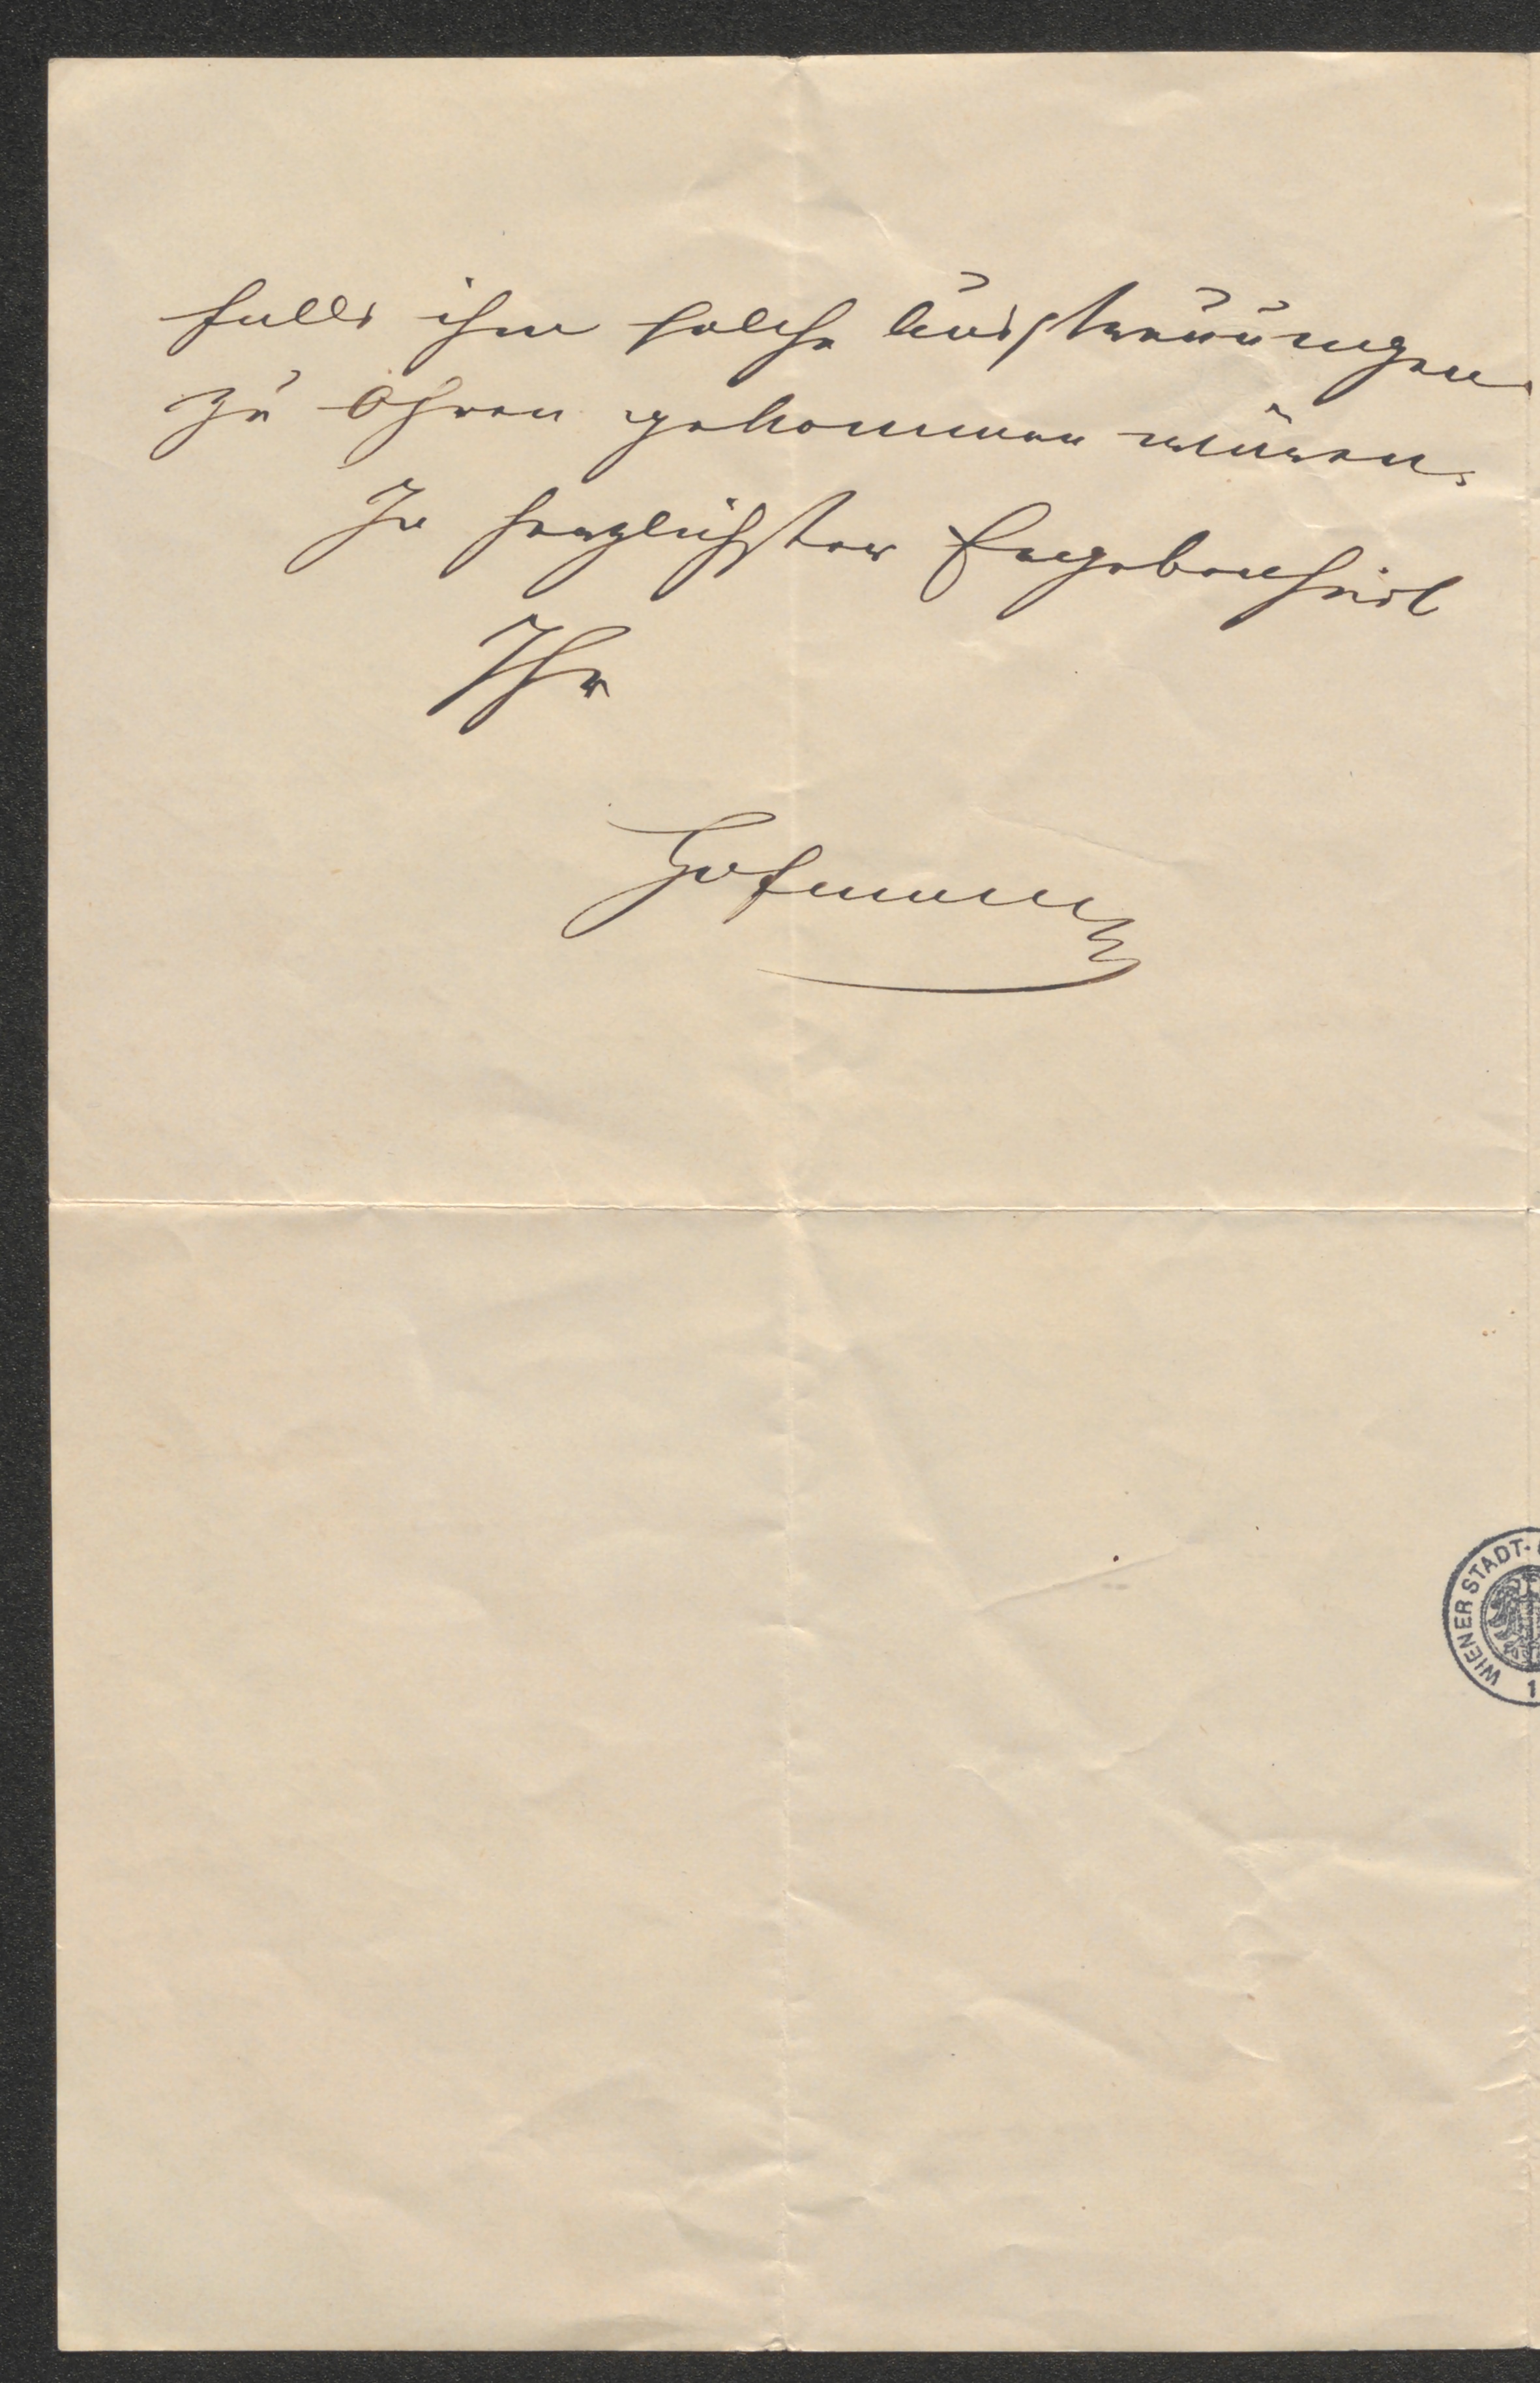 falls ihm solche Ausstreuungen
zu Ohren gekommen wären.
In herzlichster Ergebenheit
Ihr
Hofmann
WIENER STADT-
1